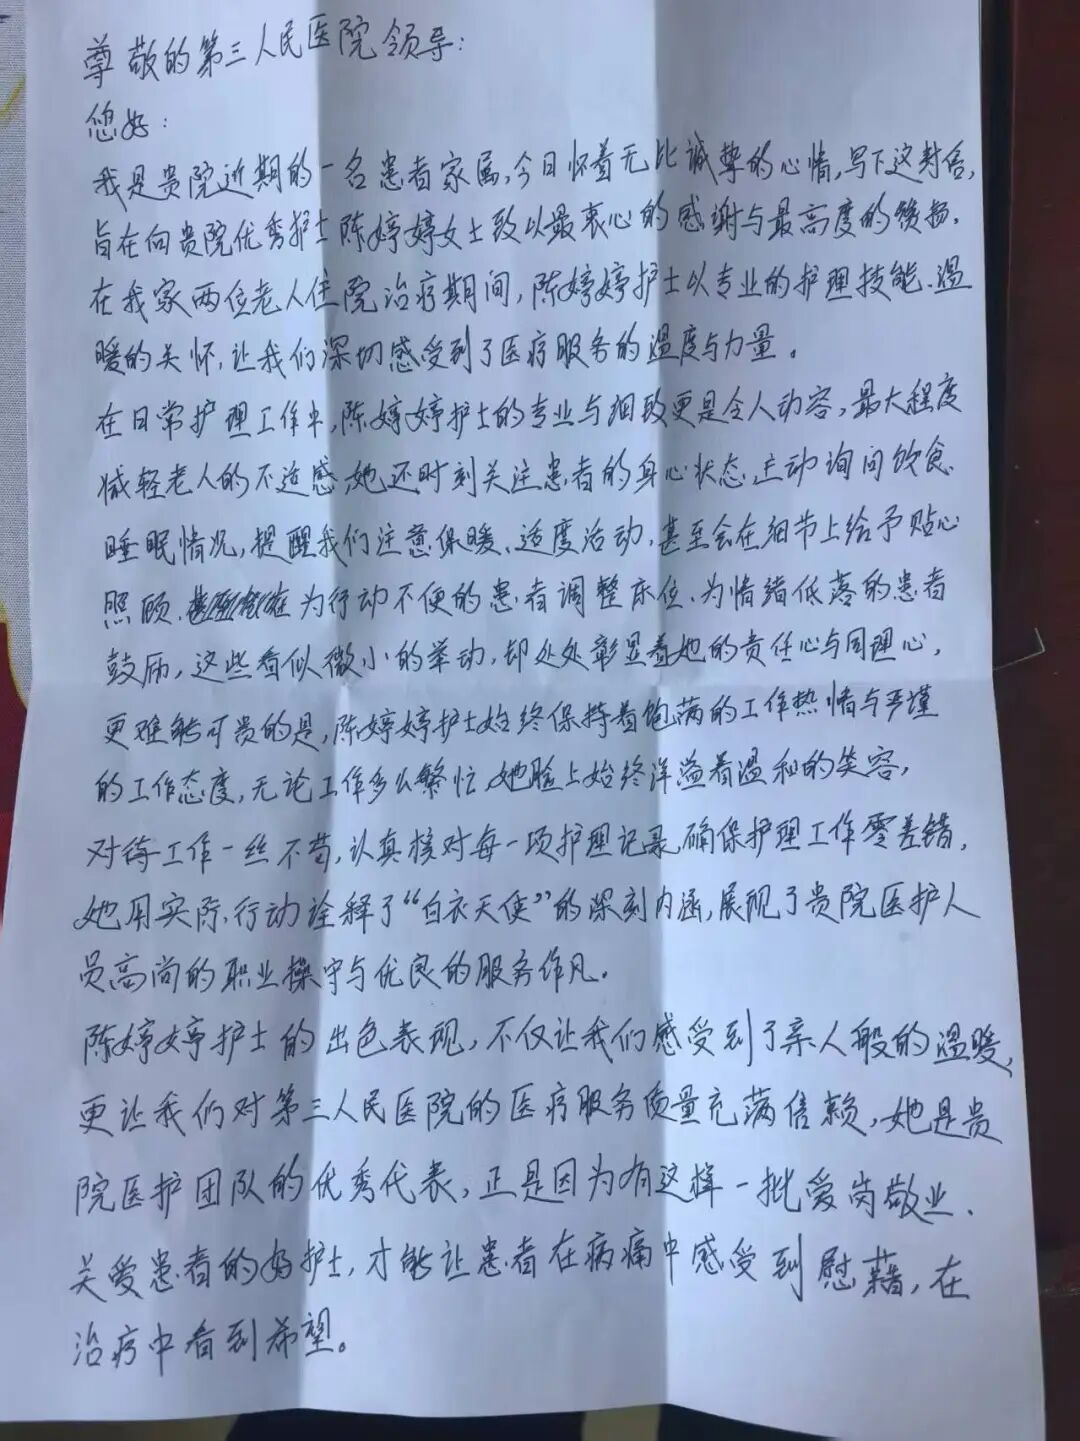 尊敬的第三人民医院领导：
您好：
我是贵院近期的一名患者家属,今日怀着无比诚挚的心情,写下这封信,
旨在向贵院优秀护士陈婷婷女士致以最衷心的感谢与最高度的赞扬.
在我家两位老人住院治疗期间,陈婷婷护士以专业的护理技能、温
暖的关怀,让我们深切感受到了医疗服务的温度与力量。
在日常护理工作中,陈婷婷护士的专业与细致更是令人动容,最大程度
减轻老人的不适感,她还时刻关注患者的身心状态,主动询问饮食、
睡眠情况,提醒我们注意保暖、适度活动,甚至会在细节上给予贴心
照顾.为行动不便的患者调整床位、为情绪低落的患者
鼓励,这些看似微小的举动,却处处彰显着她的责任心与同理心,
更难能可贵的是,陈婷婷护士始终保持着饱满的工作热情与严谨
的工作态度,无论工作多么繁忙,她脸上始终洋溢着温和的笑容,
对待工作一丝不苟,认真核对每一项护理记录,确保护理工作零差错,
她用实际行动诠释了“白衣天使”的深刻内涵,展现了贵院医护人
员高尚的职业操守与优良的服务作风。
陈婷婷护士的出色表现,不仅让我们感受到了亲人般的温暖,
更让我们对第三人民医院的医疗服务质量充满信赖,她是贵
院医护团队的优秀代表,正是因为有这样一批爱岗敬业、
关爱患者的好护士,才能让患者在病痛中感受到慰藉,在
治疗中看到希望。